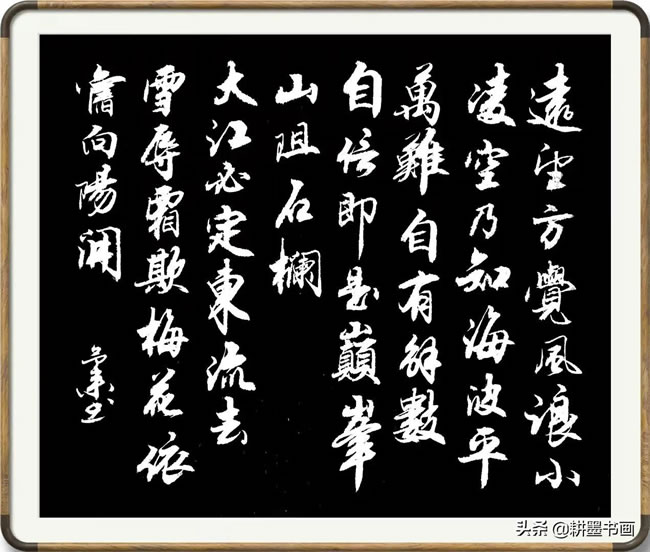 遠望方覺風浪小
凌空乃知海波平
萬難自有解數
自信即是巔峯
山阻石欄
大江必定東流去
雪辱霜欺梅花依
舊向陽開
头条 @耕墨书画